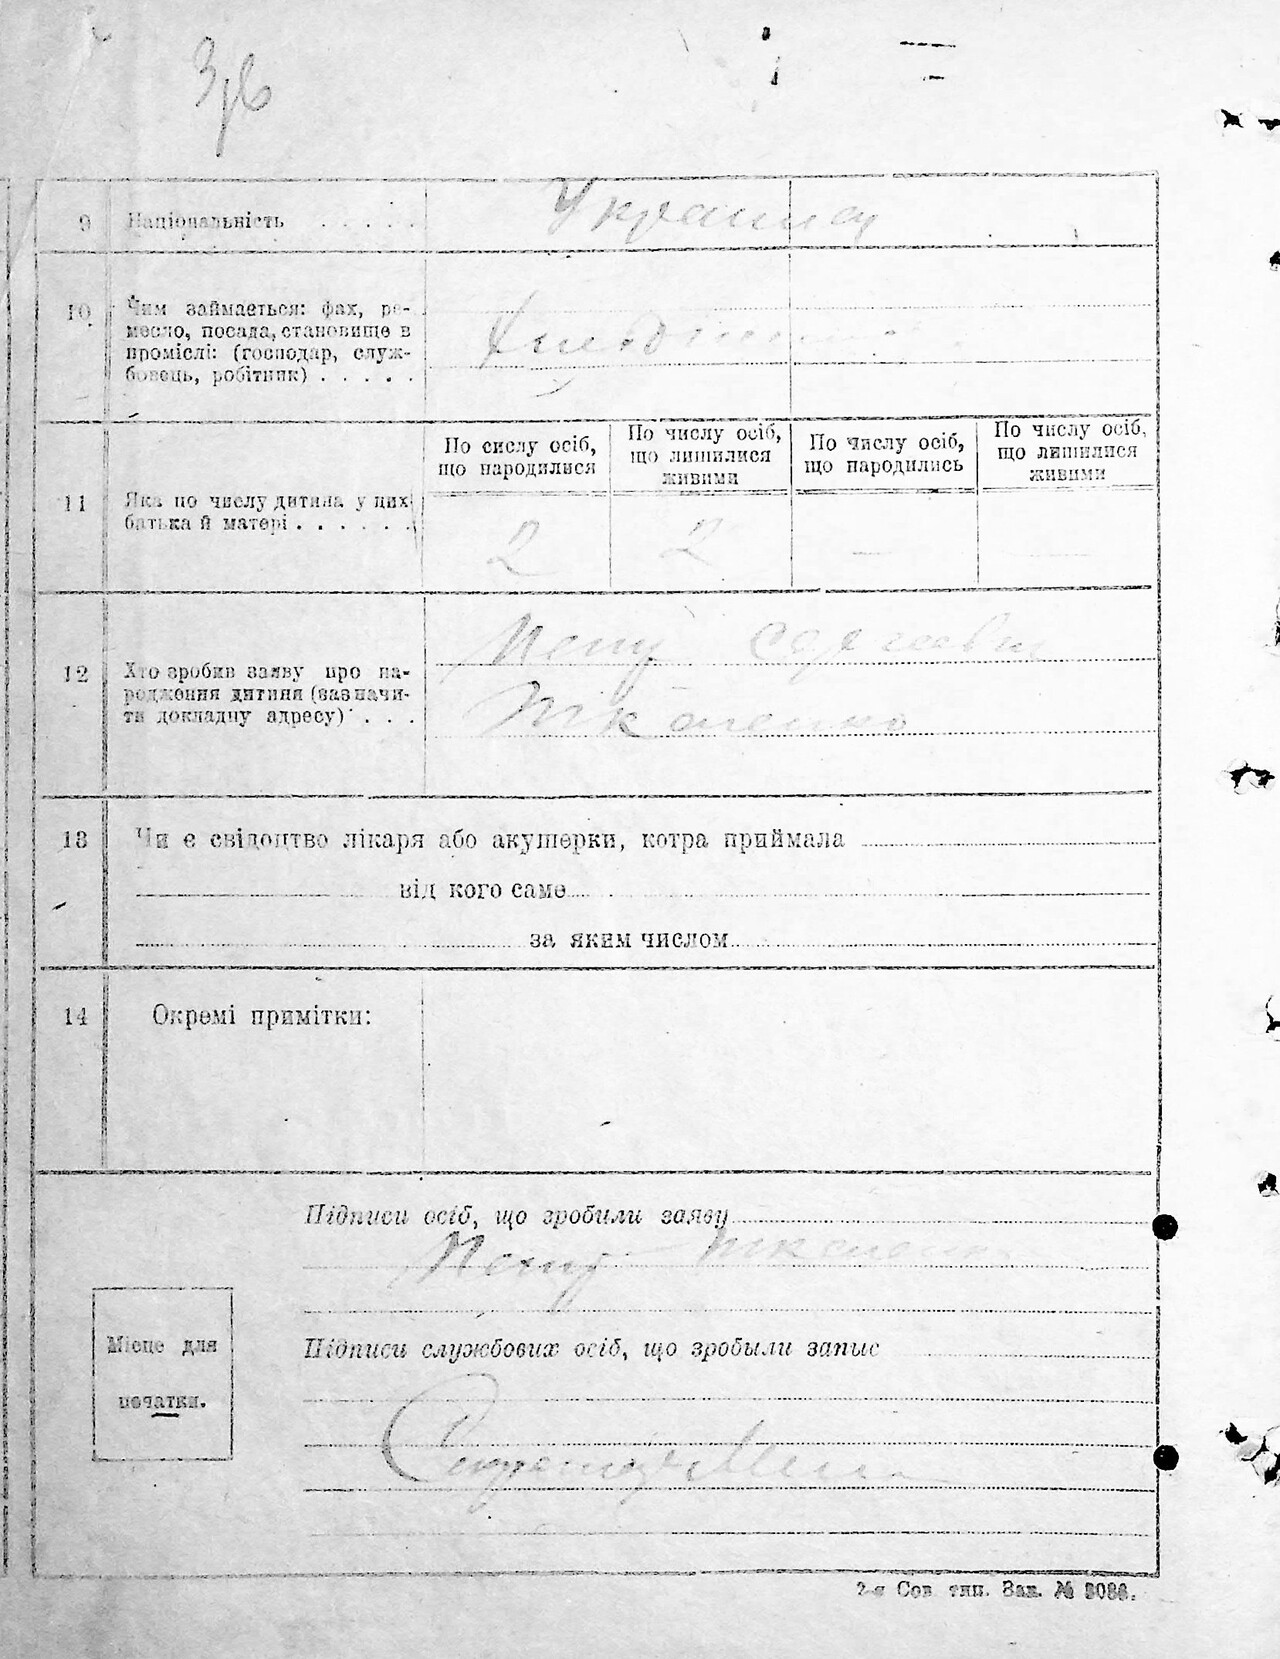 9 Національність . . . . .
10 Чим займається: фах, ре-
месло, посада, становище в
проміслі: (господар, служ-
бовець, робітник) . . . . .
По сислу осіб,
що народилися
По числу осіб,
що лишилися
живими
По числу осіб,
що народились
По числу осіб,
що лишилися
живими
11 Яка по числу дитина у цих
батька й матері . . . . . .
2 2 — —
12 Хто зробив заяву про на-
родження дитини (зазначи-
ти докладну адресу) . . .
Ткаченко
13 Чи є свідоцтво лікаря або акушерки, котра приймала
від кого саме
за яким числом
14 Окремі примітки:
Підписи осіб, що зробили заяву
Місце для
печатки.
Підписи службових осіб, що зробыли запис
2-я Сов. тип. Зак. №